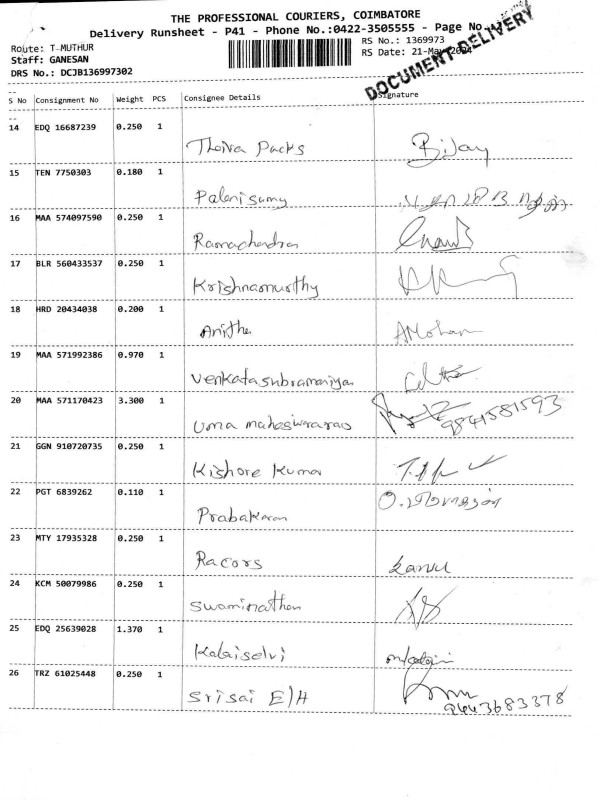 THE PROFESSIONAL COURIERS, COIMBATORE
Delivery Runsheet - P41 - Phone No.:0422-3505555 - Page No.
Route: T-MUTHUR
RS No.: 1369973
Staff: GANESAN
RS Date: 21-May-2024
DRS No.: DCJB136997302
DOCUMENT DELIVERY
S No Consignment No Weight PCS Consignee Details Signature
14 EDQ 16687239 0.250 1 Packs Bijay
15 TEN 7750303 0.180 1 Palanisamy
16 MAA 574097590 0.250 1 Ramachandran
17 BLR 560433537 0.250 1 Krishnamurthy
18 HRD 20434038 0.200 1 Anitha AMohan
19 MAA 571992386 0.970 1 Venkatasubramaniyan
20 MAA 571170423 3.300 1 Uma maheswararao 9841581593
21 GGN 910720735 0.250 1 Kishore Kumar
22 PGT 6839262 0.110 1 Prabakaran
23 MTY 17935328 0.250 1 Racors
24 KCM 50079986 0.250 1 Swaminathan
25 EDQ 25639028 1.370 1 Kalaiselvi
26 TRZ 61025448 0.250 1 Srisai E/H 9443683378